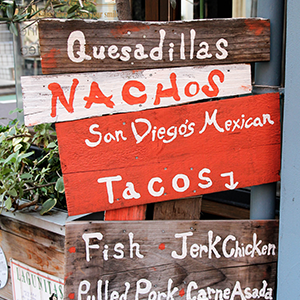 Quesadillas
NACHOS
San Diego's Mexican
Tacos
Fish • Jerk Chicken
Pulled Pork • Carne Asada
LAGUNITAS